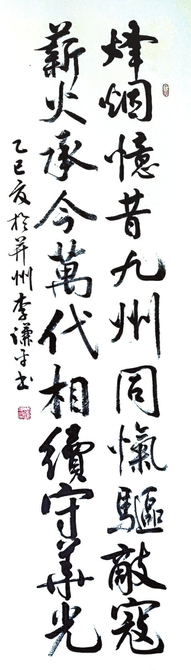 烽烟憶昔九州同愾驅敵寇
薪火承今萬代相續守華光
乙巳夏於并州李谦书